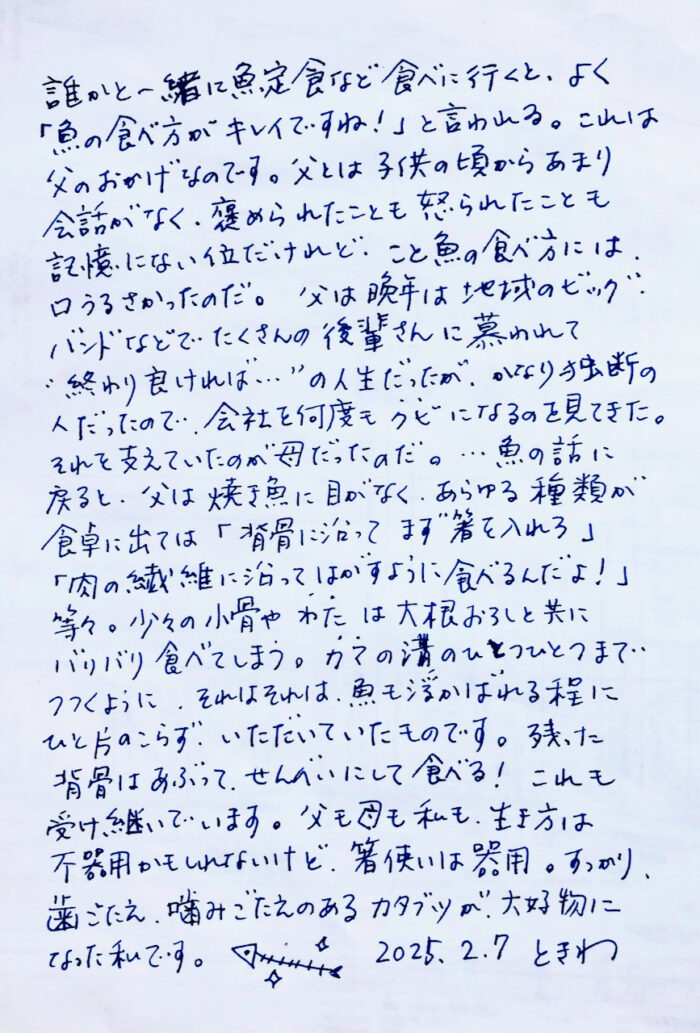 誰かと一緒に魚定食など食べに行くと、よく
「魚の食べ方がキレイですね!」と言われる。これは
父のおかげなのです。父とは子供の頃からあまり
会話がなく、褒められたことも怒られたことも
記憶にない位だけれど、こと魚の食べ方には、
口うるさかったのだ。父は晩年は地域のビッグ
バンドなどでたくさんの後輩さんに慕われて
"終わり良ければ…"の人生だったが、かなり独断の
人だったので、会社を何度もクビになるのを見てきた。
それを支えていたのが母だったのだ。…魚の話に
戻ると、父は焼き魚に目がなく、あらゆる種類が
食卓に出ては「背骨に沿ってまず箸を入れろ」
「肉の繊維に沿ってはがすように食べるんだよ!」
等々。少々の小骨やわたは大根おろしと共に
バリバリ食べてしまう。カマの溝のひとつひとつまで
つつくように、それはそれは、魚も浮かばれる程に
ひと片のこらず、いただいていたものです。残った
背骨はあぶって、せんべいにして食べる!これも
受け継いでいます。父も母も私も、生き方は
不器用かもしれないけど、箸使いは器用。すっかり、
歯ごたえ、噛みごたえのあるカタブツが、大好物に
なった私です。 2025.2.7 ときわ